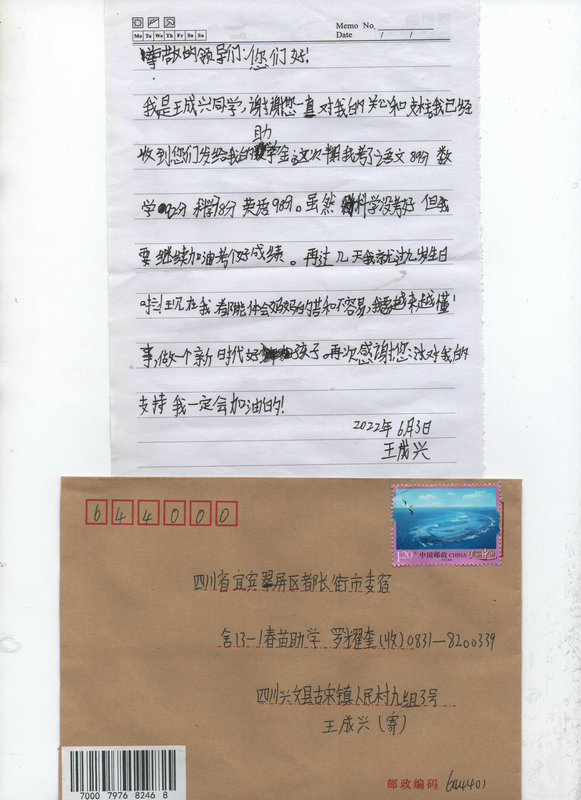 Memo No.
Mo Tu We Th Fr Sa Su
Date / /
尊敬的领导们:您们好!
我是王成兴同学,谢谢您一直对我的关心和支持我已经
助
收到您们发给我的学金这次半期我考了语文89分 数
学92分 科学78分 英语98分。虽然科学没考好 但我
要继续加油考个好成绩。再过几天我就过九岁生日
啦!现在我都能体会妈妈的苦和不容易,我要越来越懂
事,做一个新时代好孩子。再次感谢您们对我的
支持 我一定会加油的!
2022年6月3日
王成兴
644000
1.20元 中国邮政 CHINA
四川省宜宾翠屏区都长街市委宿
舍13-1春苗助学 罗耀奎(收)0831-8200339
四川兴文县古宋镇人民村九组3号
王成兴(寄)
邮政编码 644401
7000 7976 8246 8